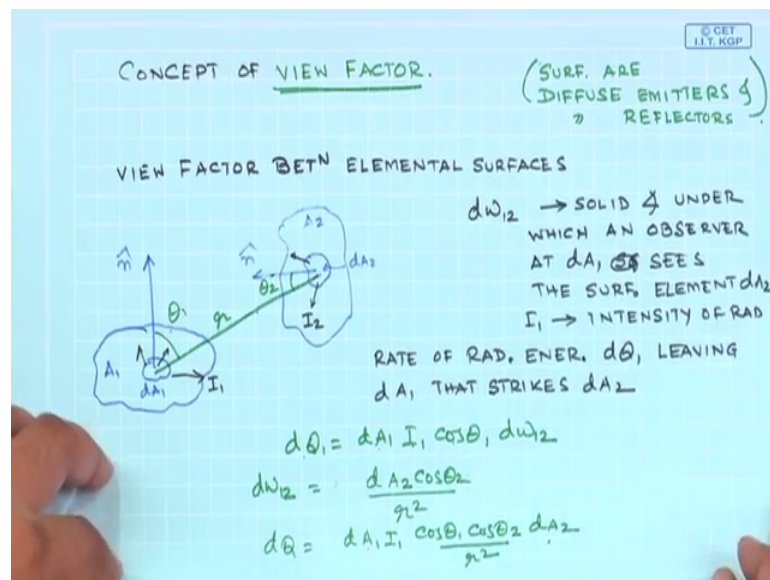 © CET
I.I.T. KGP
CONCEPT OF VIEW FACTOR.
(SURF. ARE
DIFFUSE EMITTERS &
" REFLECTORS).
VIEW FACTOR BETN ELEMENTAL SURFACES
dω12 → SOLID ∡ UNDER
WHICH AN OBSERVER
AT dA1 SEES
THE SURF. ELEMENT dA2
I1 → INTENSITY OF RAD
n̂
θ1
r
A1
dA1
I1
A2
n̂
dA2
θ2
I2
RATE OF RAD. ENER. dQ1 LEAVING
dA1 THAT STRIKES dA2
dQ1 = dA1 I1 cosθ1 dω12
dω12 = dA2 cosθ2 / r2
dQ = dA1 I1 cosθ1 cosθ2 dA2 / r2